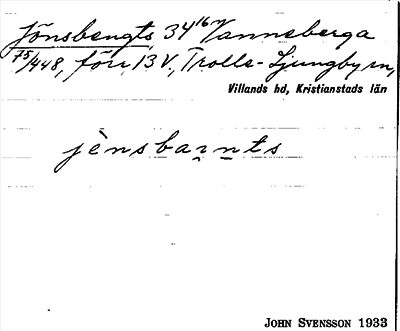 Jönsbengts, 34¹⁶ᵐ Vanneberga
75/448, förr 13 V., Trolle-Ljungby sn,
Villands hd, Kristianstads län
jènsbaṟṉts
JOHN SVENSSON 1933